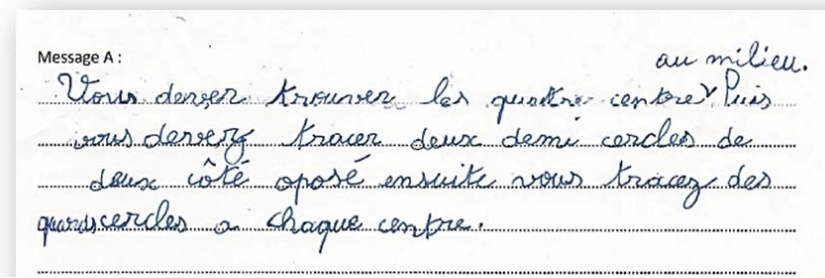 Message A :
au milieu.
Vous devez trouver les quatre centre Puis
vous devez tracer deux demi cercles de
deux côté oposé ensuite vous tracez des
quards cercles a chaque centre.